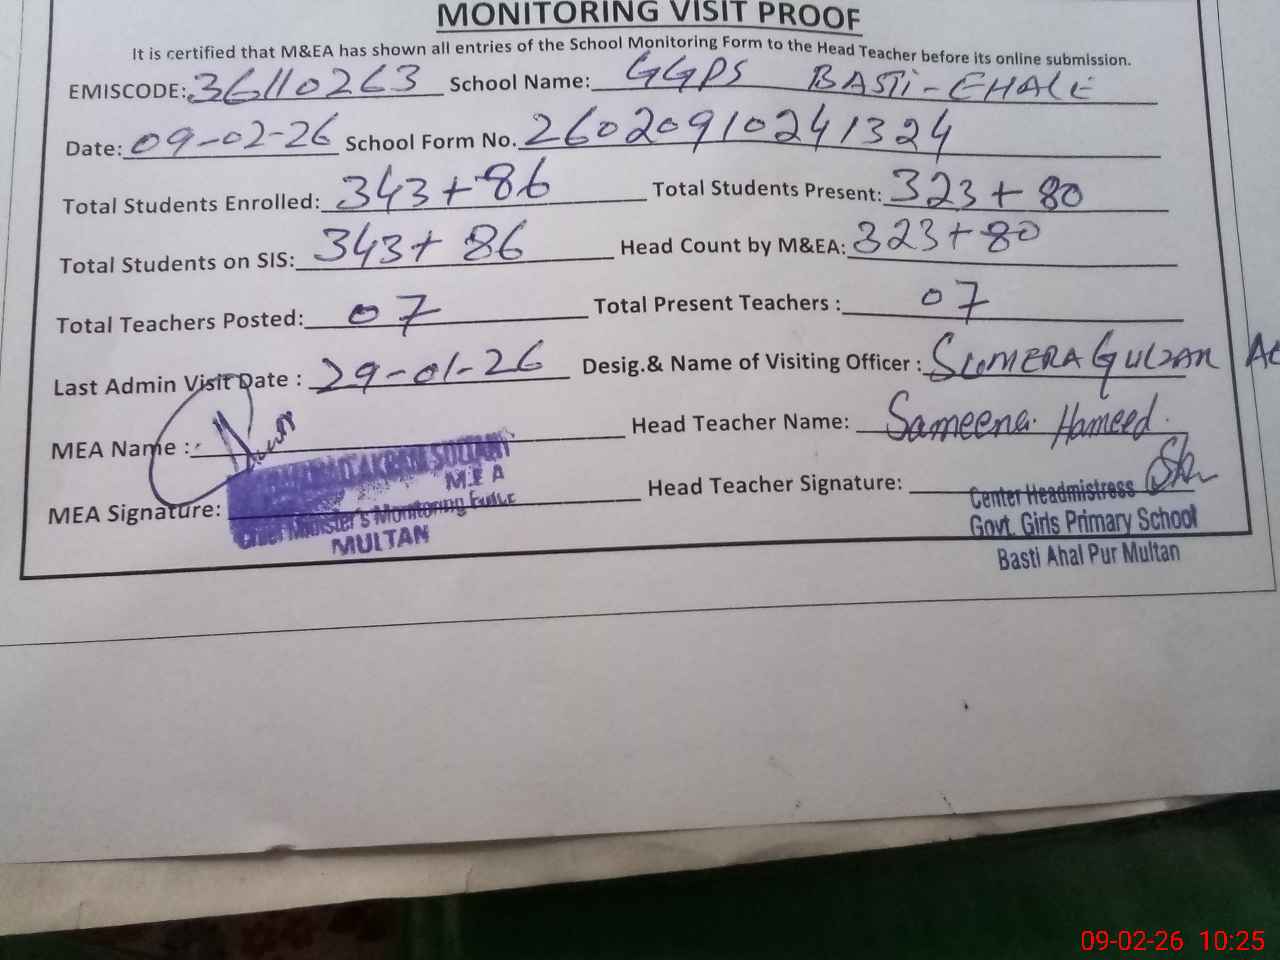 MONITORING VISIT PROOF
It is certified that M&EA has shown all entries of the School Monitoring Form to the Head Teacher before its online submission.
EMISCODE: 36110263 School Name: GGPS BASTI-EHALE
Date: 09-02-26 School Form No. 26020910241324
Total Students Enrolled: 343+86 Total Students Present: 323+80
Total Students on SIS: 343+86 Head Count by M&EA: 323+80
Total Teachers Posted: 07 Total Present Teachers : 07
Last Admin Visit Date : 29-01-26 Desig.& Name of Visiting Officer : SUMERA GULZAR
MEA Name : Head Teacher Name: Sameena Hameed.
AKRAM
M.E.A
MEA Signature: Head Teacher Signature:
Chief Minister's Monitoring Force
MULTAN
Center Headmistress
Govt. Girls Primary School
Basti Ahal Pur Multan
09-02-26 10:25